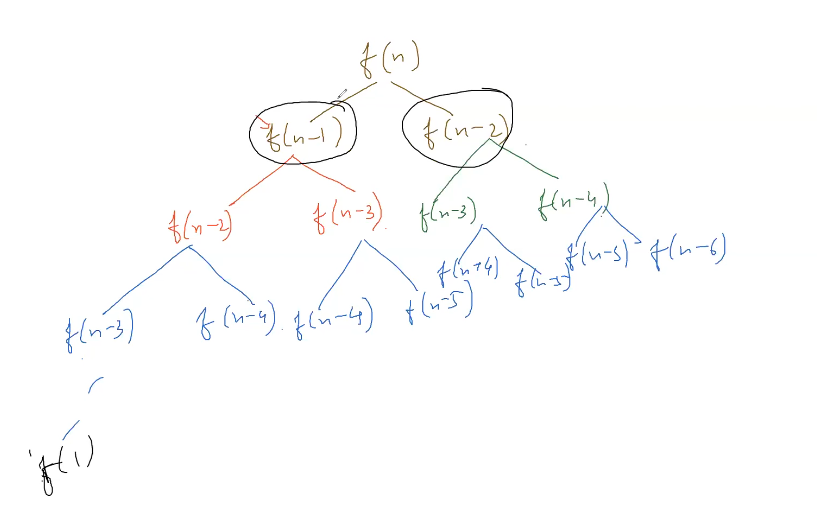 f(n)
f(n-1) f(n-2)
f(n-2) f(n-3) f(n-3) f(n-4)
f(n-3) f(n-4) f(n-4) f(n-5) f(n+4) f(n-5) f(n-5) f(n-6)
f(1)